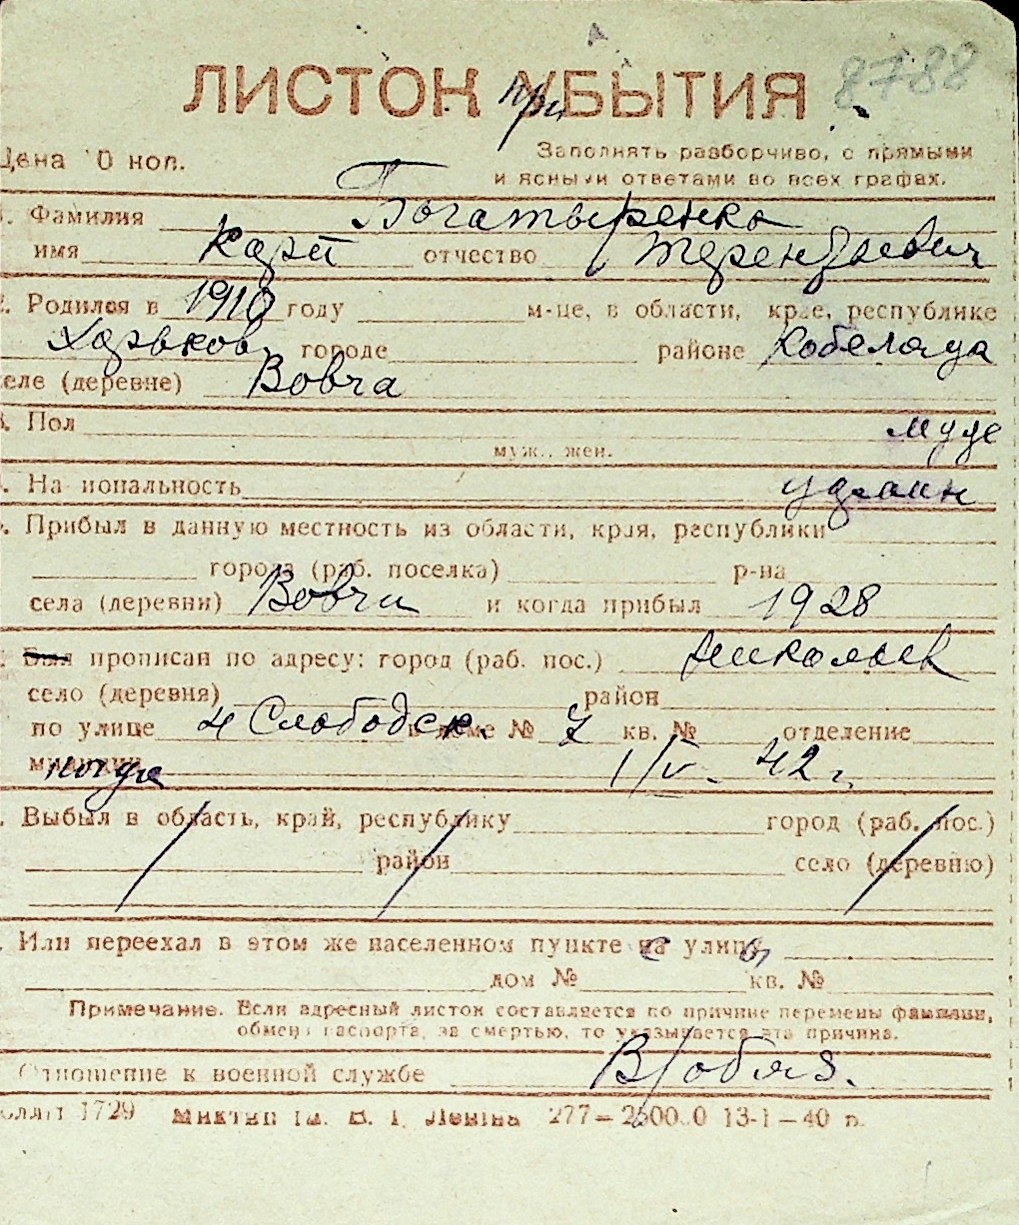 8788
ЛИСТОК при УБЫТИЯ
Цена 0 коп. Заполнять разборчиво, с прямыми
и ясными ответами во всех графах.
1. Фамилия Богатыренко
имя Карп отчество Терентьевич
2. Родился в 1910 году м-це, в области, крае, республике
Харьков. городе районе Кобелоцга
селе (деревне) Вовча
3. Пол муж
муж., жен.
На иональность украин
Прибыл в данную местность из области, края, республики
города (раб. поселка) р-на
села (деревни) Вовчи и когда прибыл 1928
Был прописан по адресу: город (раб. пос.) Николаев
село (деревня) район
по улице 4 Слободск. в доме № 7 кв. № отделение
милиции когда 1/IV - 42 г.
Выбыл в область, край, республику город (раб. пос.)
район село (деревню)
Или переехал в этом же населенном пункте на улицу
дом № кв. №
Примечание. Если адресный листок составляется по причине перемены фамилии,
обмена паспорта, за смертью, то указывается эта причина.
Отношение к военной службе В/обяз.
1729 им. В. І. Леніна 277— 13-1—40 р.